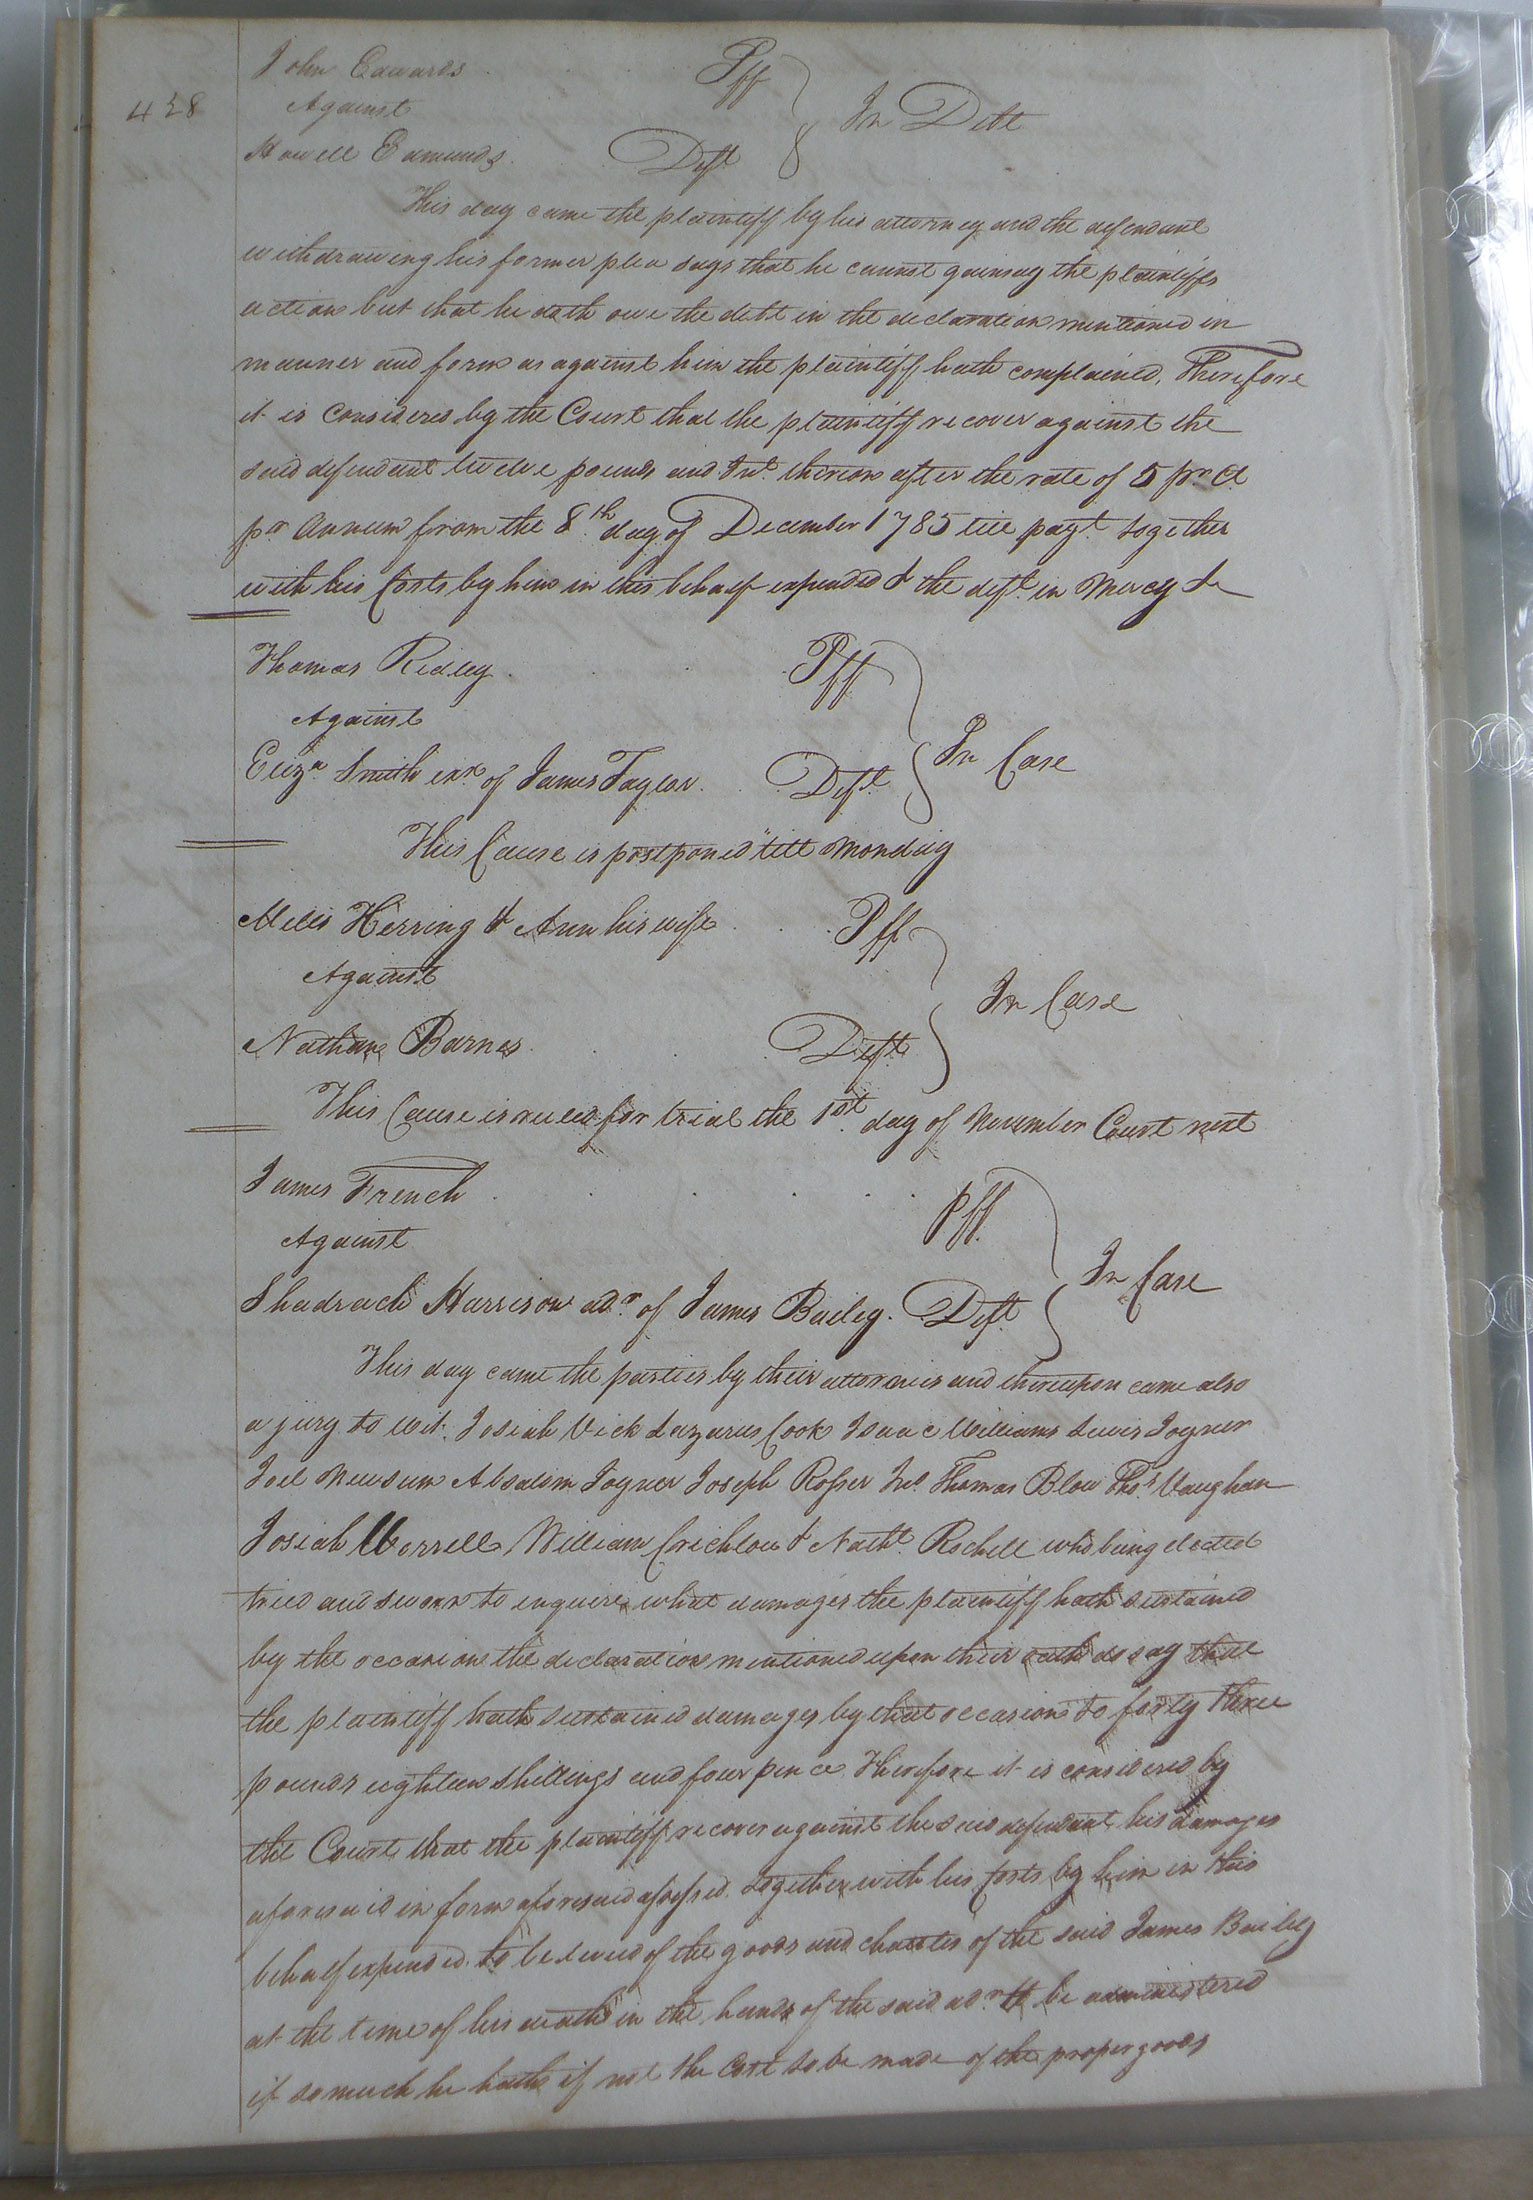 John Edwards Pff
428
Against In Debt
Howell Edmunds Deft
This day came the plaintiff by his attorney and the defendant
withdrawing his former plea says that he cannot gainsay the plaintiffs
action but that he doth owe the debt in the declaration mentioned in
manner and form as against him the plaintiff hath complained. Therefore
it is considered by the Court that the plaintiff recover against the
said defendant twelve pounds and Int. thereon after the rate of 5 pr Ct
pr Annum from the 8th day of December 1785 till payt. together
with his Costs by him in this behalf expended & the deft. in Mercy &c
Thomas Ridley Pff
Against
Eliza. Smith exx. of James Taylor. Deft. In Case
This Cause is postponed till Monday
Mills Herring & Ann his wife Pff
Against In Case
Nathan Barnes Deft.
This Cause is ruled for trial the 1st. day of November Court next
James French Pff.
Against In Case
Shadrach Harrison adr. of James Bailey. Deft
This day came the parties by their attornies and thereupon came also
a jury to wit. Josiah Vick Lazarus Cook Isaac Williams Lewis Joyner
Joel Newsum Absalom Joyner Joseph Rosser Thomas Blow Thos. Vaughan
Josiah Worrell William Crichlow & Nathl. Rochell who being elected
tried and sworn to enquire what damages the plaintiff hath sustained
by the occasion the declaration mentioned upon their oath do say that
the plaintiff hath sustained damages by that occasion to forty three
pounds eighteen shillings and four pence Therefore it is considered by
the Court that the plaintiff recover against the said defendant his damages
aforesaid in form aforesaid assessed together with his Costs by him in this
behalf expended. to be levied of the goods and chattles of the said James Bailey
at the time of his death in the hands of the said adr. to be administered
if so much he hath if not the Cost to be made of the proper goods